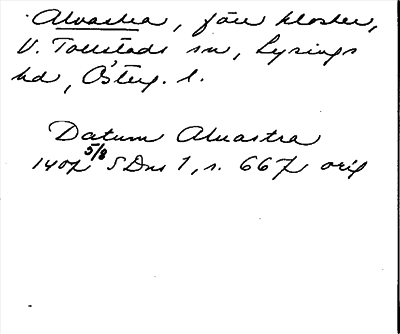 Alvastra, förr kloster,
V. Tollstads sn, Lysings
hd, Österg. l.
Datum Alvastra
1407 5/8 SDns 1, s. 667 orig